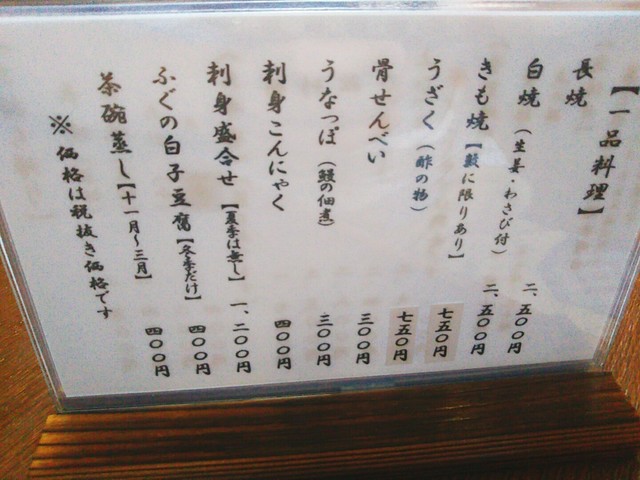 【一品料理】
長焼 二、五〇〇円
白焼（生姜・わさび付） 二、五〇〇円
きも焼【数に限りあり】 七五〇円
うざく（酢の物） 七五〇円
骨せんべい 三〇〇円
うなっぽ（鰻の佃煮） 三〇〇円
刺身こんにゃく 四〇〇円
刺身盛合せ【夏季は無し】 一、二〇〇円
ふぐの白子豆腐【冬季だけ】 四〇〇円
茶碗蒸し【十一月～三月】 四〇〇円
※価格は税抜き価格です